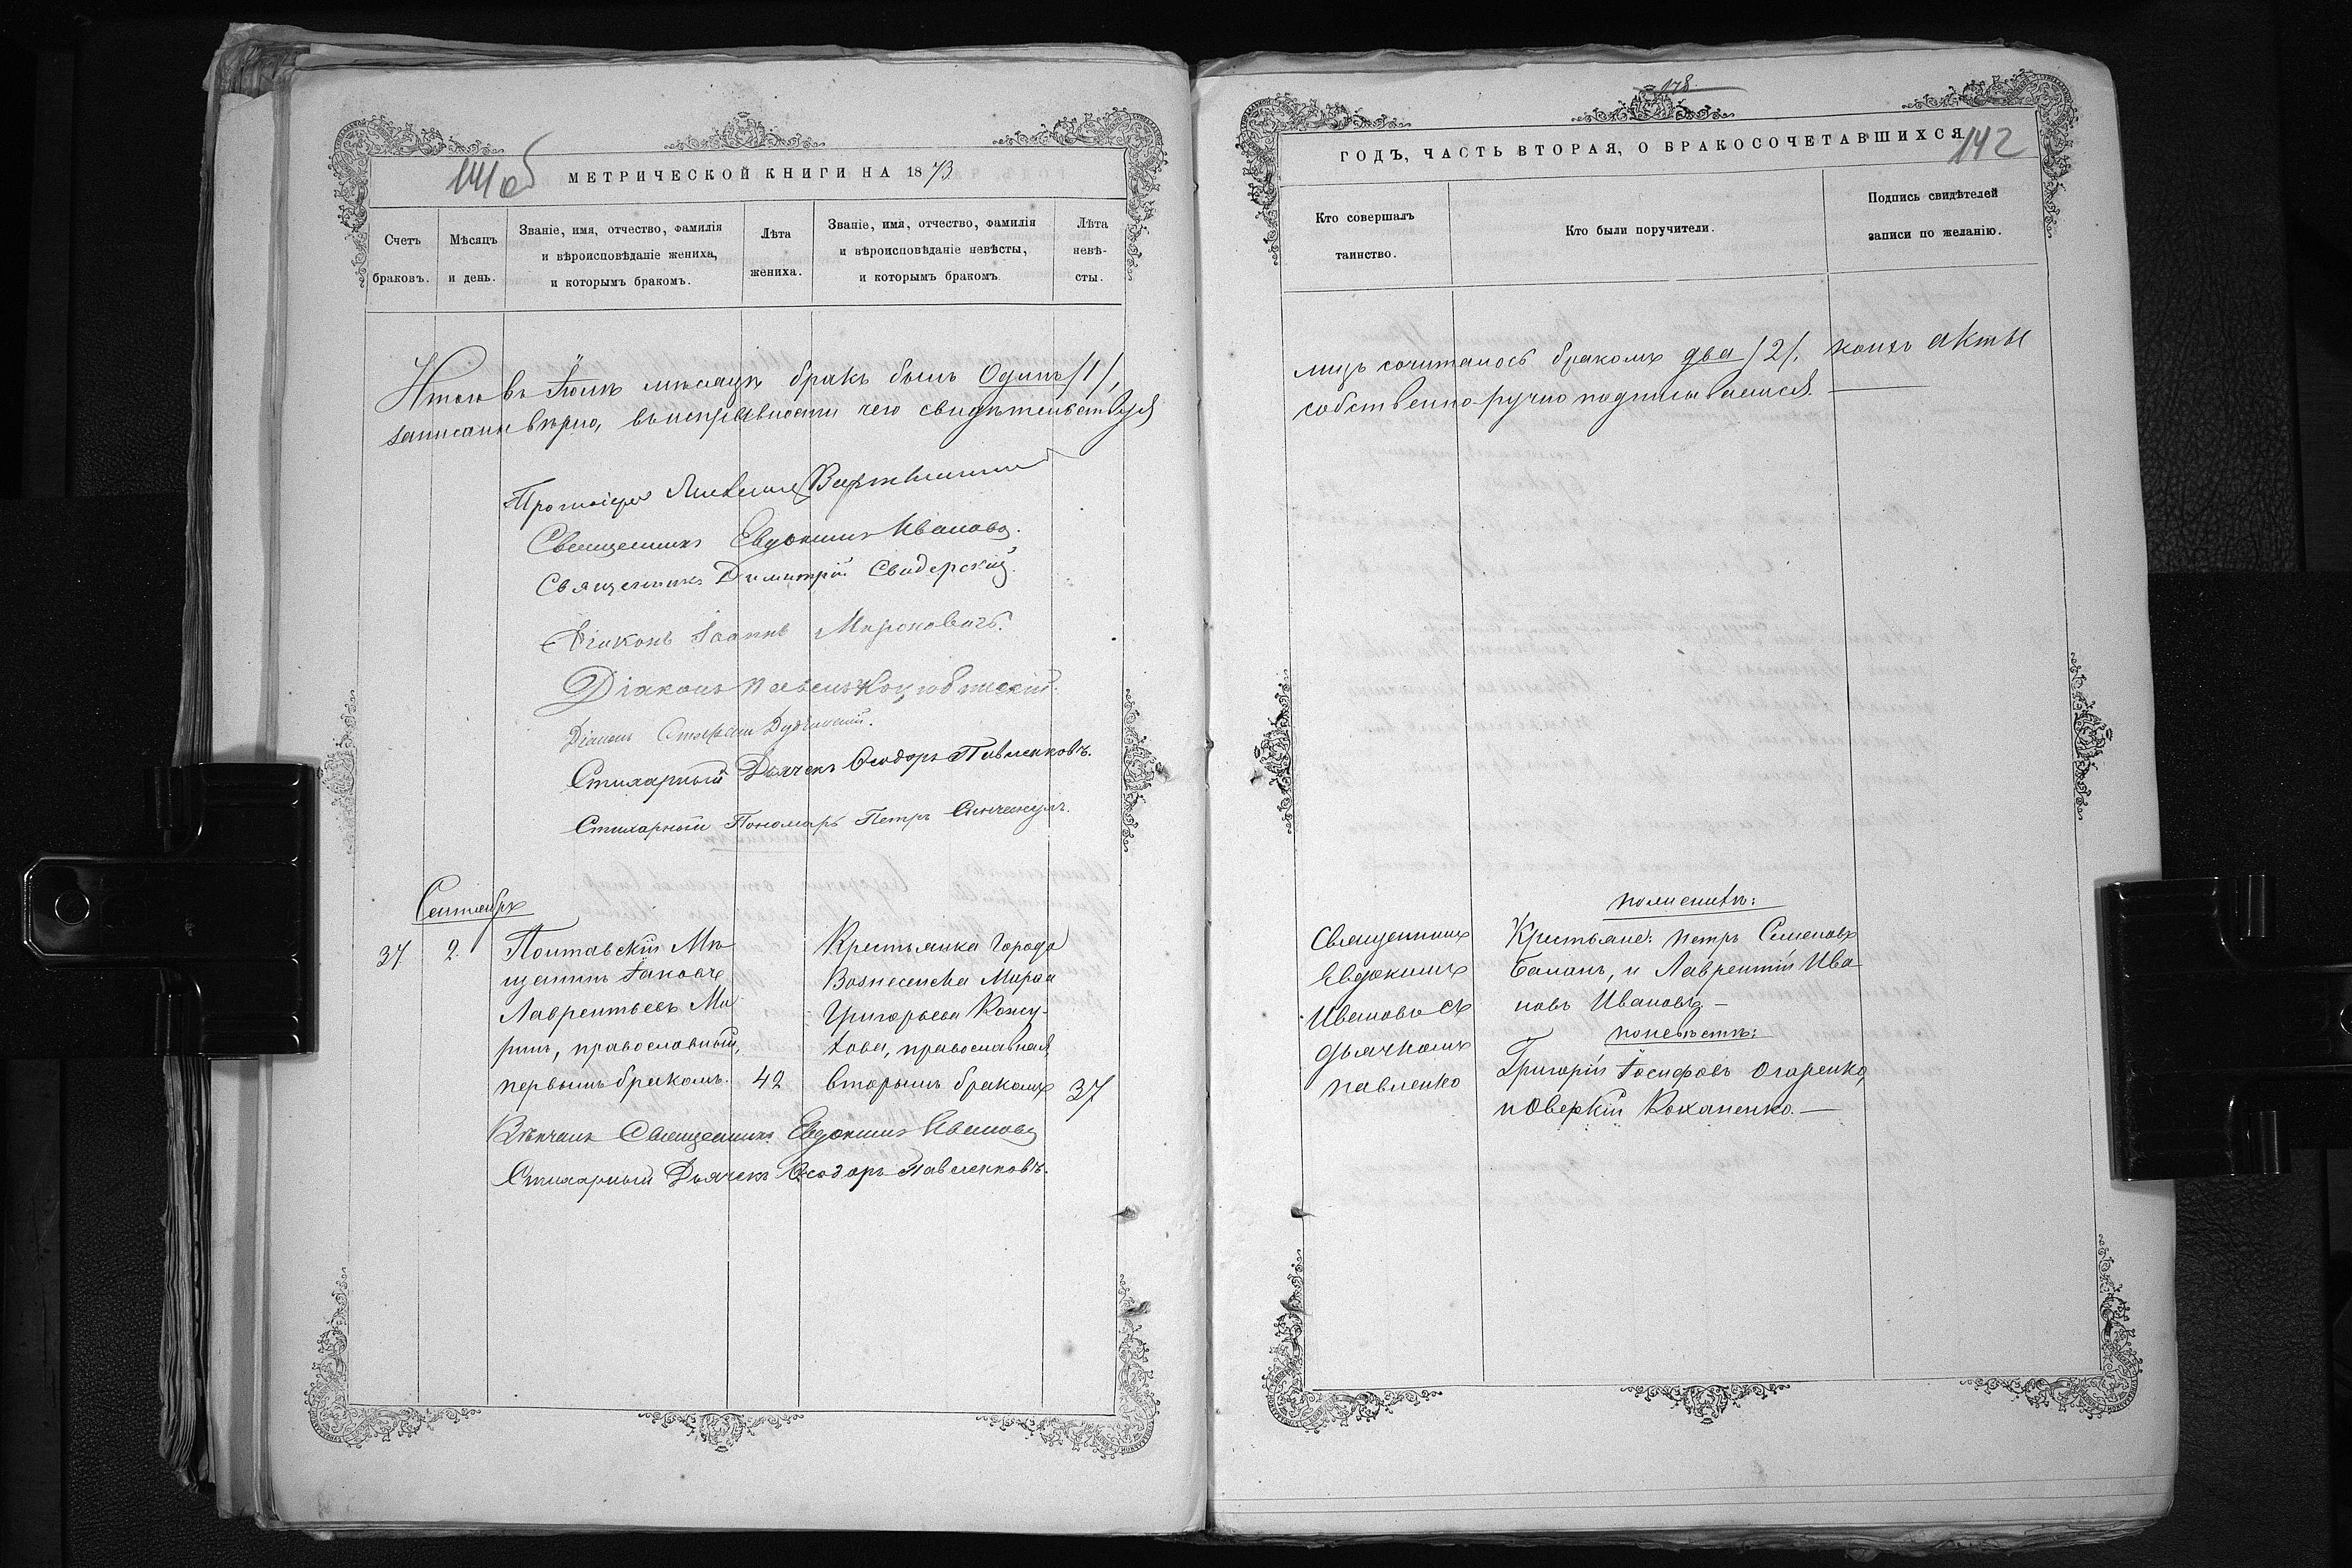 141 об
МЕТРИЧЕСКОЙ КНИГИ НА 1873
Счетъ браковъ.
Мѣсяцъ и день.
Званіе, имя, отчество, фамилія
и вѣроисповѣданіе жениха,
и которымъ бракомъ.
Лѣта жениха.
Званіе, имя, отчество, фамилія
и вѣроисповѣданіе невѣсты,
и которымъ бракомъ
Лѣта невѣ-
сты.
Итого въ Іюлѣ мѣсяцѣ бракъ былъ Одинъ /1/,
записанъ вѣрно, въ исправности чего свидѣтельствуемъ
Протоіерей
Священникъ Евдокимъ Ивановъ.
Священникъ Димитрій Свидерскій.
Діаконъ Іоаннъ Мироновичъ.
Діаконъ Павелъ Коцюбинскій.
Діаконъ Стефанъ
Стихарный Дьячекъ Ѳеодоръ Павленковъ.
Стихарный Пономарь Петръ
Сентябрь
37
2.
Полтавскій Мѣ-
щанинъ Іаковъ
Лаврентьевъ Ма-
ринъ, православный,
первымъ бракомъ.
42
Крестьянка Города
Вознесенска Марѳа
Григорьева Кожу-
хова, православная,
вторымъ бракомъ
37
Вѣнчалъ Священникъ Евдокимъ Ивановъ
Стихарный Дьячекъ Ѳеодоръ Павленковъ.
178
ГОДЪ, ЧАСТЬ ВТОРАЯ, О БРАКОСОЧЕТАВШИХСЯ
142
Кто совершалъ
таинство.
Кто были поручители.
Подпись свидѣтелей
записи по желанію.
лицъ сочиталось бракомъ два /2/. коихъ акты
собственно-ручно подписываемся.
Священникъ
Евдокимъ
Ивановъ съ
дьячкомъ
Павленко
по женихѣ:
Крестьяне: Петръ Семеновъ
Баланъ, и Лаврентій Ива-
новъ Ивановъ.—
по невѣстѣ:
Григорій Іосифовъ Огоренко,
и Оверкій Коханенко.—